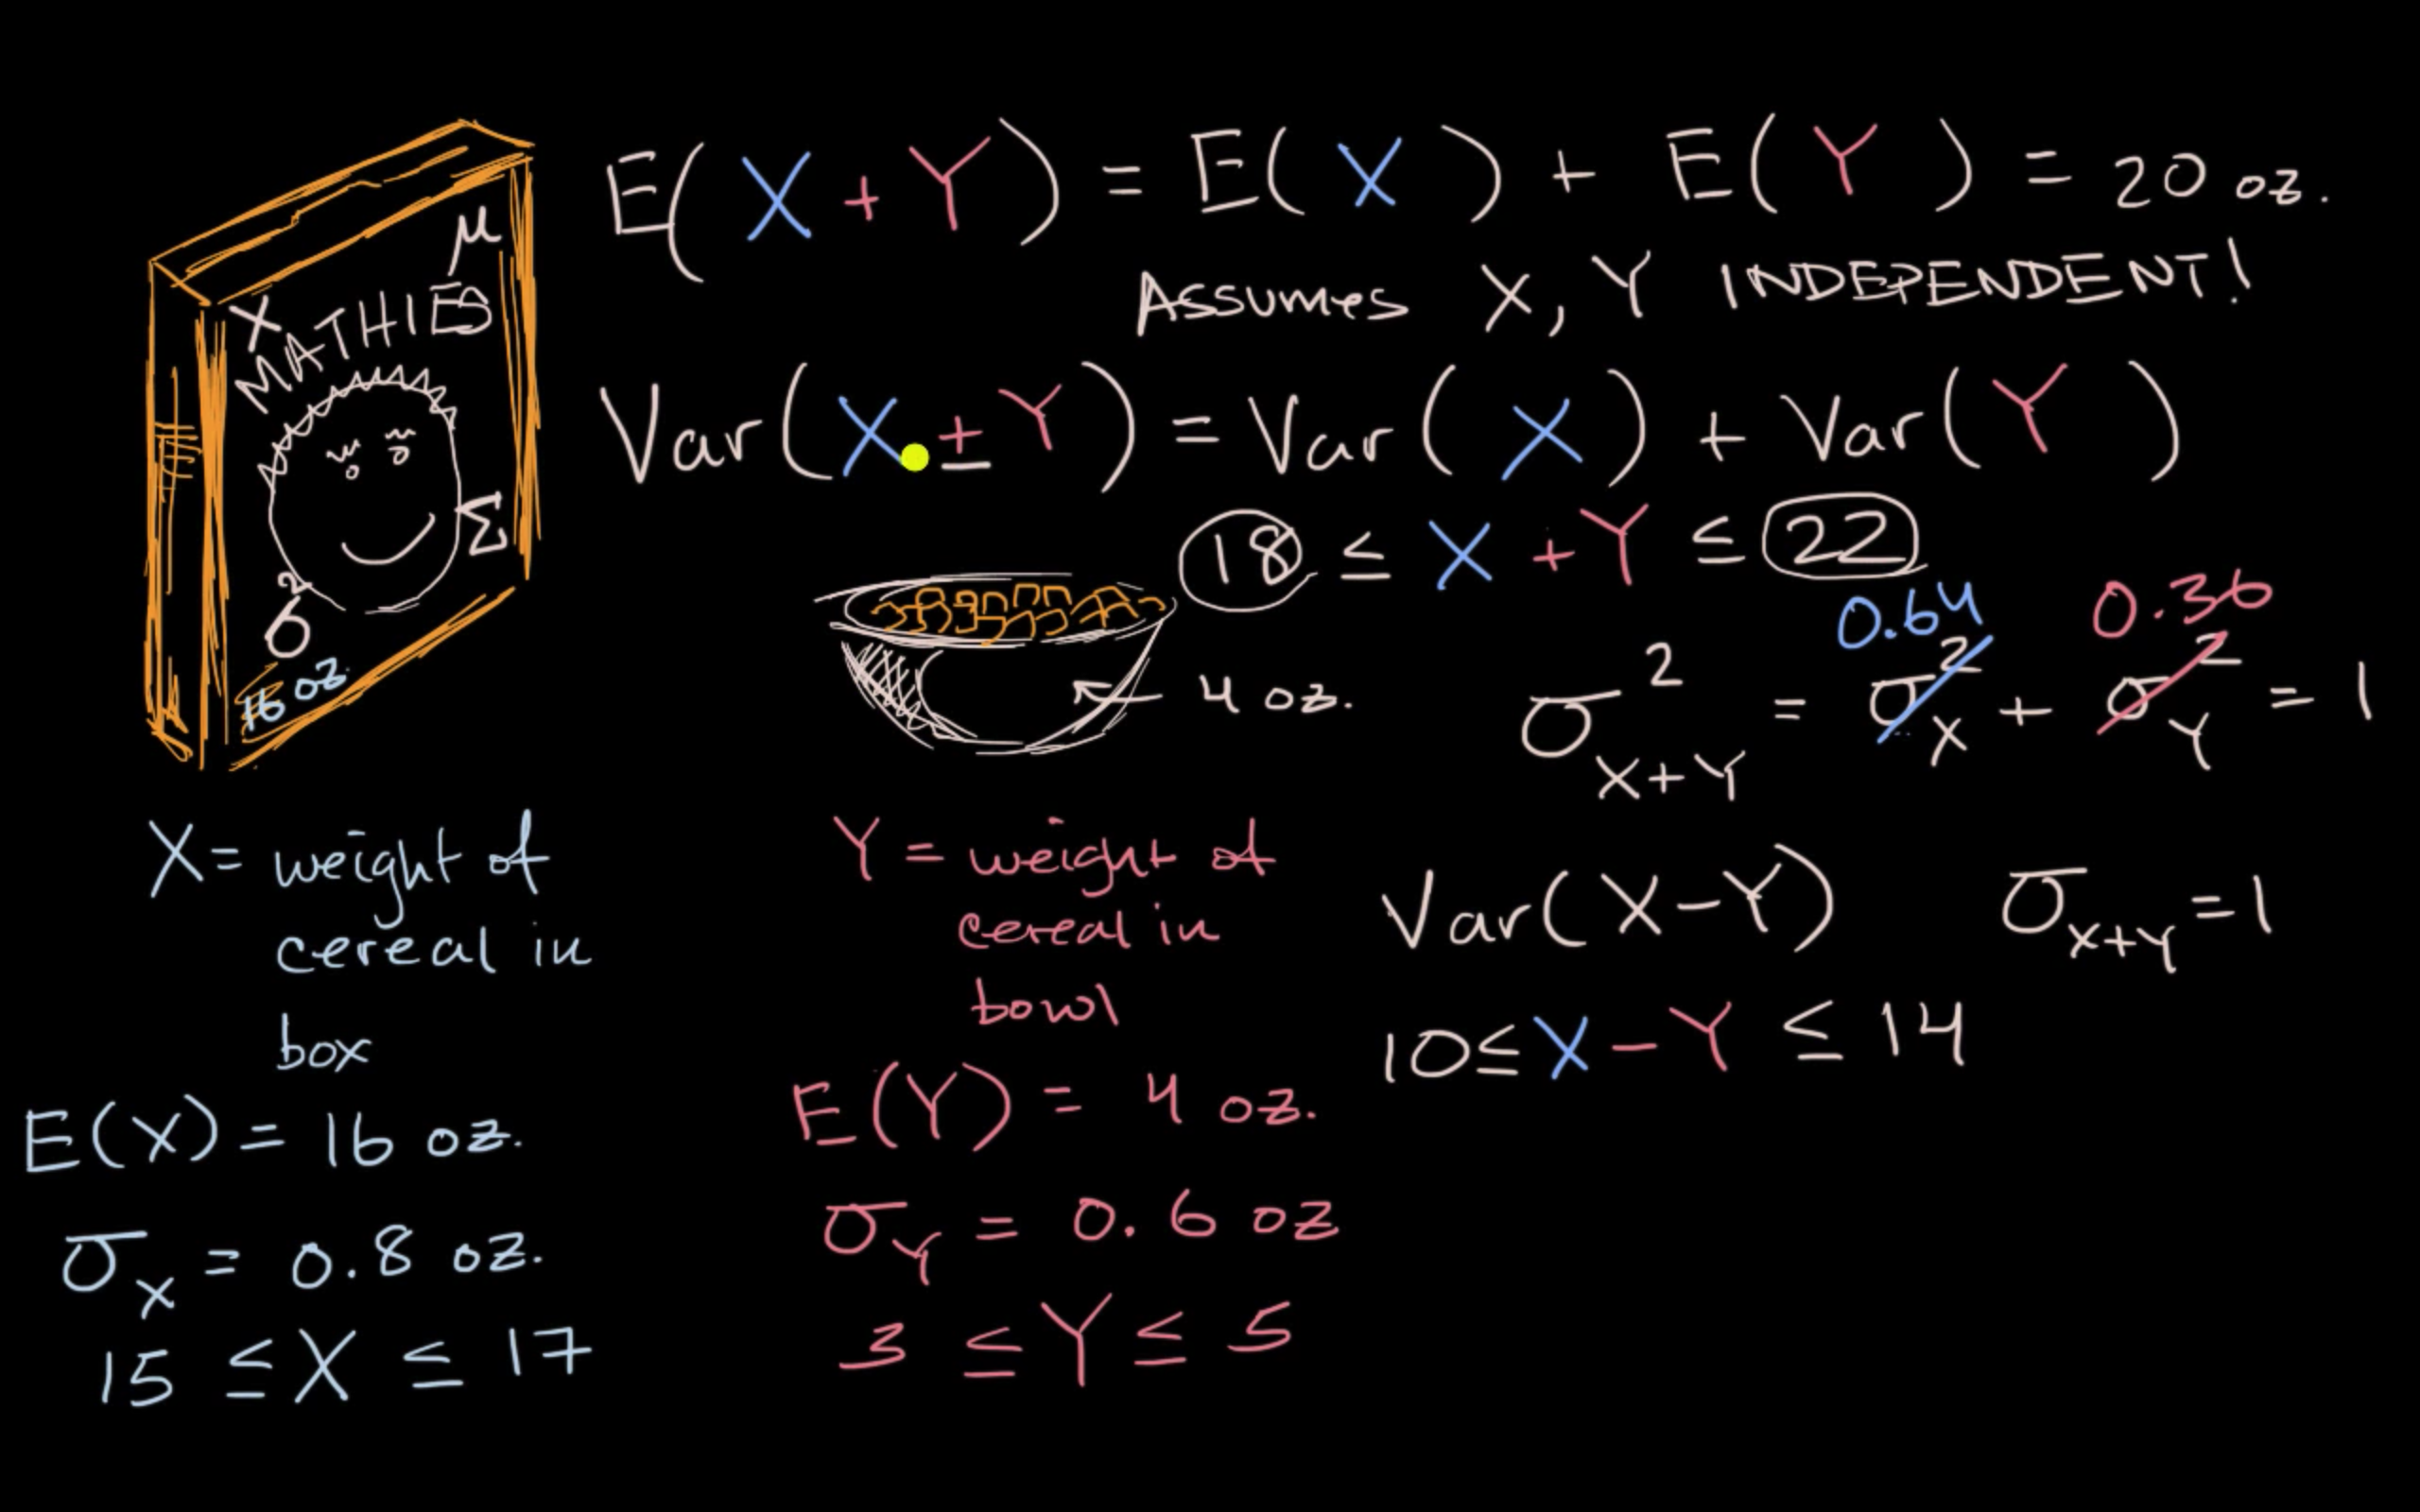 E(X + Y) = E(X) + E(Y) = 20 oz.
ASSUMES X, Y INDEPENDENT!
Var(X ± Y) = Var(X) + Var(Y)
18 ≤ X + Y ≤ 22
μ
X
MATHIES
Σ
σ²
16 oz.
4 oz.
0.64 0.36
σ²X+Y = σ²X + σ²Y = 1
X = weight of
cereal in
box
E(X) = 16 oz.
σX = 0.8 oz.
15 ≤ X ≤ 17
Y = weight of
cereal in
bowl
E(Y) = 4 oz.
σY = 0.6 oz
3 ≤ Y ≤ 5
Var(X-Y)
σX+Y = 1
10 ≤ X - Y ≤ 14